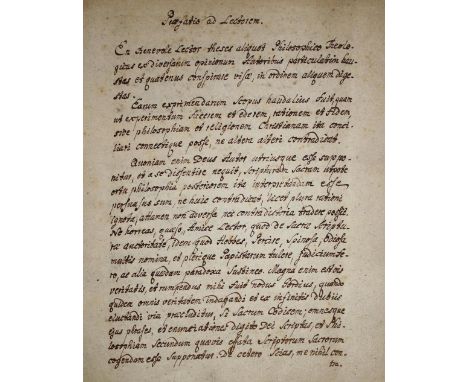 Præfatio ad Lectorem.
En Benevole Lector theses aliquot Philosophico Theolo-
gicas ex diversarum opinionum Autoribus particulatim hau-
stas et quatenus conspirare visæ, in ordinem aliquem dige-
stas.
Earum exprimendarum Scopus haud alius fuit, quam
ut experimentum facerem et ederem, rationem et fidem,
sive philosophiam et religionem Christianam ita conci-
liari connectique posse, ne altera alteri contradicat.
Quoniam enim Deus Autor utriusque esse suppo-
nitur, et a se dissentire nequit, Scripturam Sacram utpote
ortu philosophia posteriorem ita interpretandam esse
persuasus sum, ne huic contradicat, licet plura rationi
ignota, attamen non adversa nec contradictoria tradere possit.
Ne horreas, quæso, Amice Lector, quod de Sacræ Scriptu-
ræ auctoritate, idem quod Hobbes, Spinosa, odiosa
multis nomina, et plerique Papistarum tulere, judicium fe-
ro, ac alia quædam paradoxa Sustineo. Magna enim est vis
veritatis, et rumpendus mihi fuit nodus Gordius, quando
quidem omnis veritatem indagandi et ex infinitis dubiis
eluctandi via præcluditur, si Sacrum Codicem, omnesque
ejus phrases, et enuntiationes digito Dei Scriptas, et Phi-
losophiam Secundum quævis effata Scriptorum Sacrorum
cogendam esse Supponatur. De cetero Scias, me nihil con-
tra